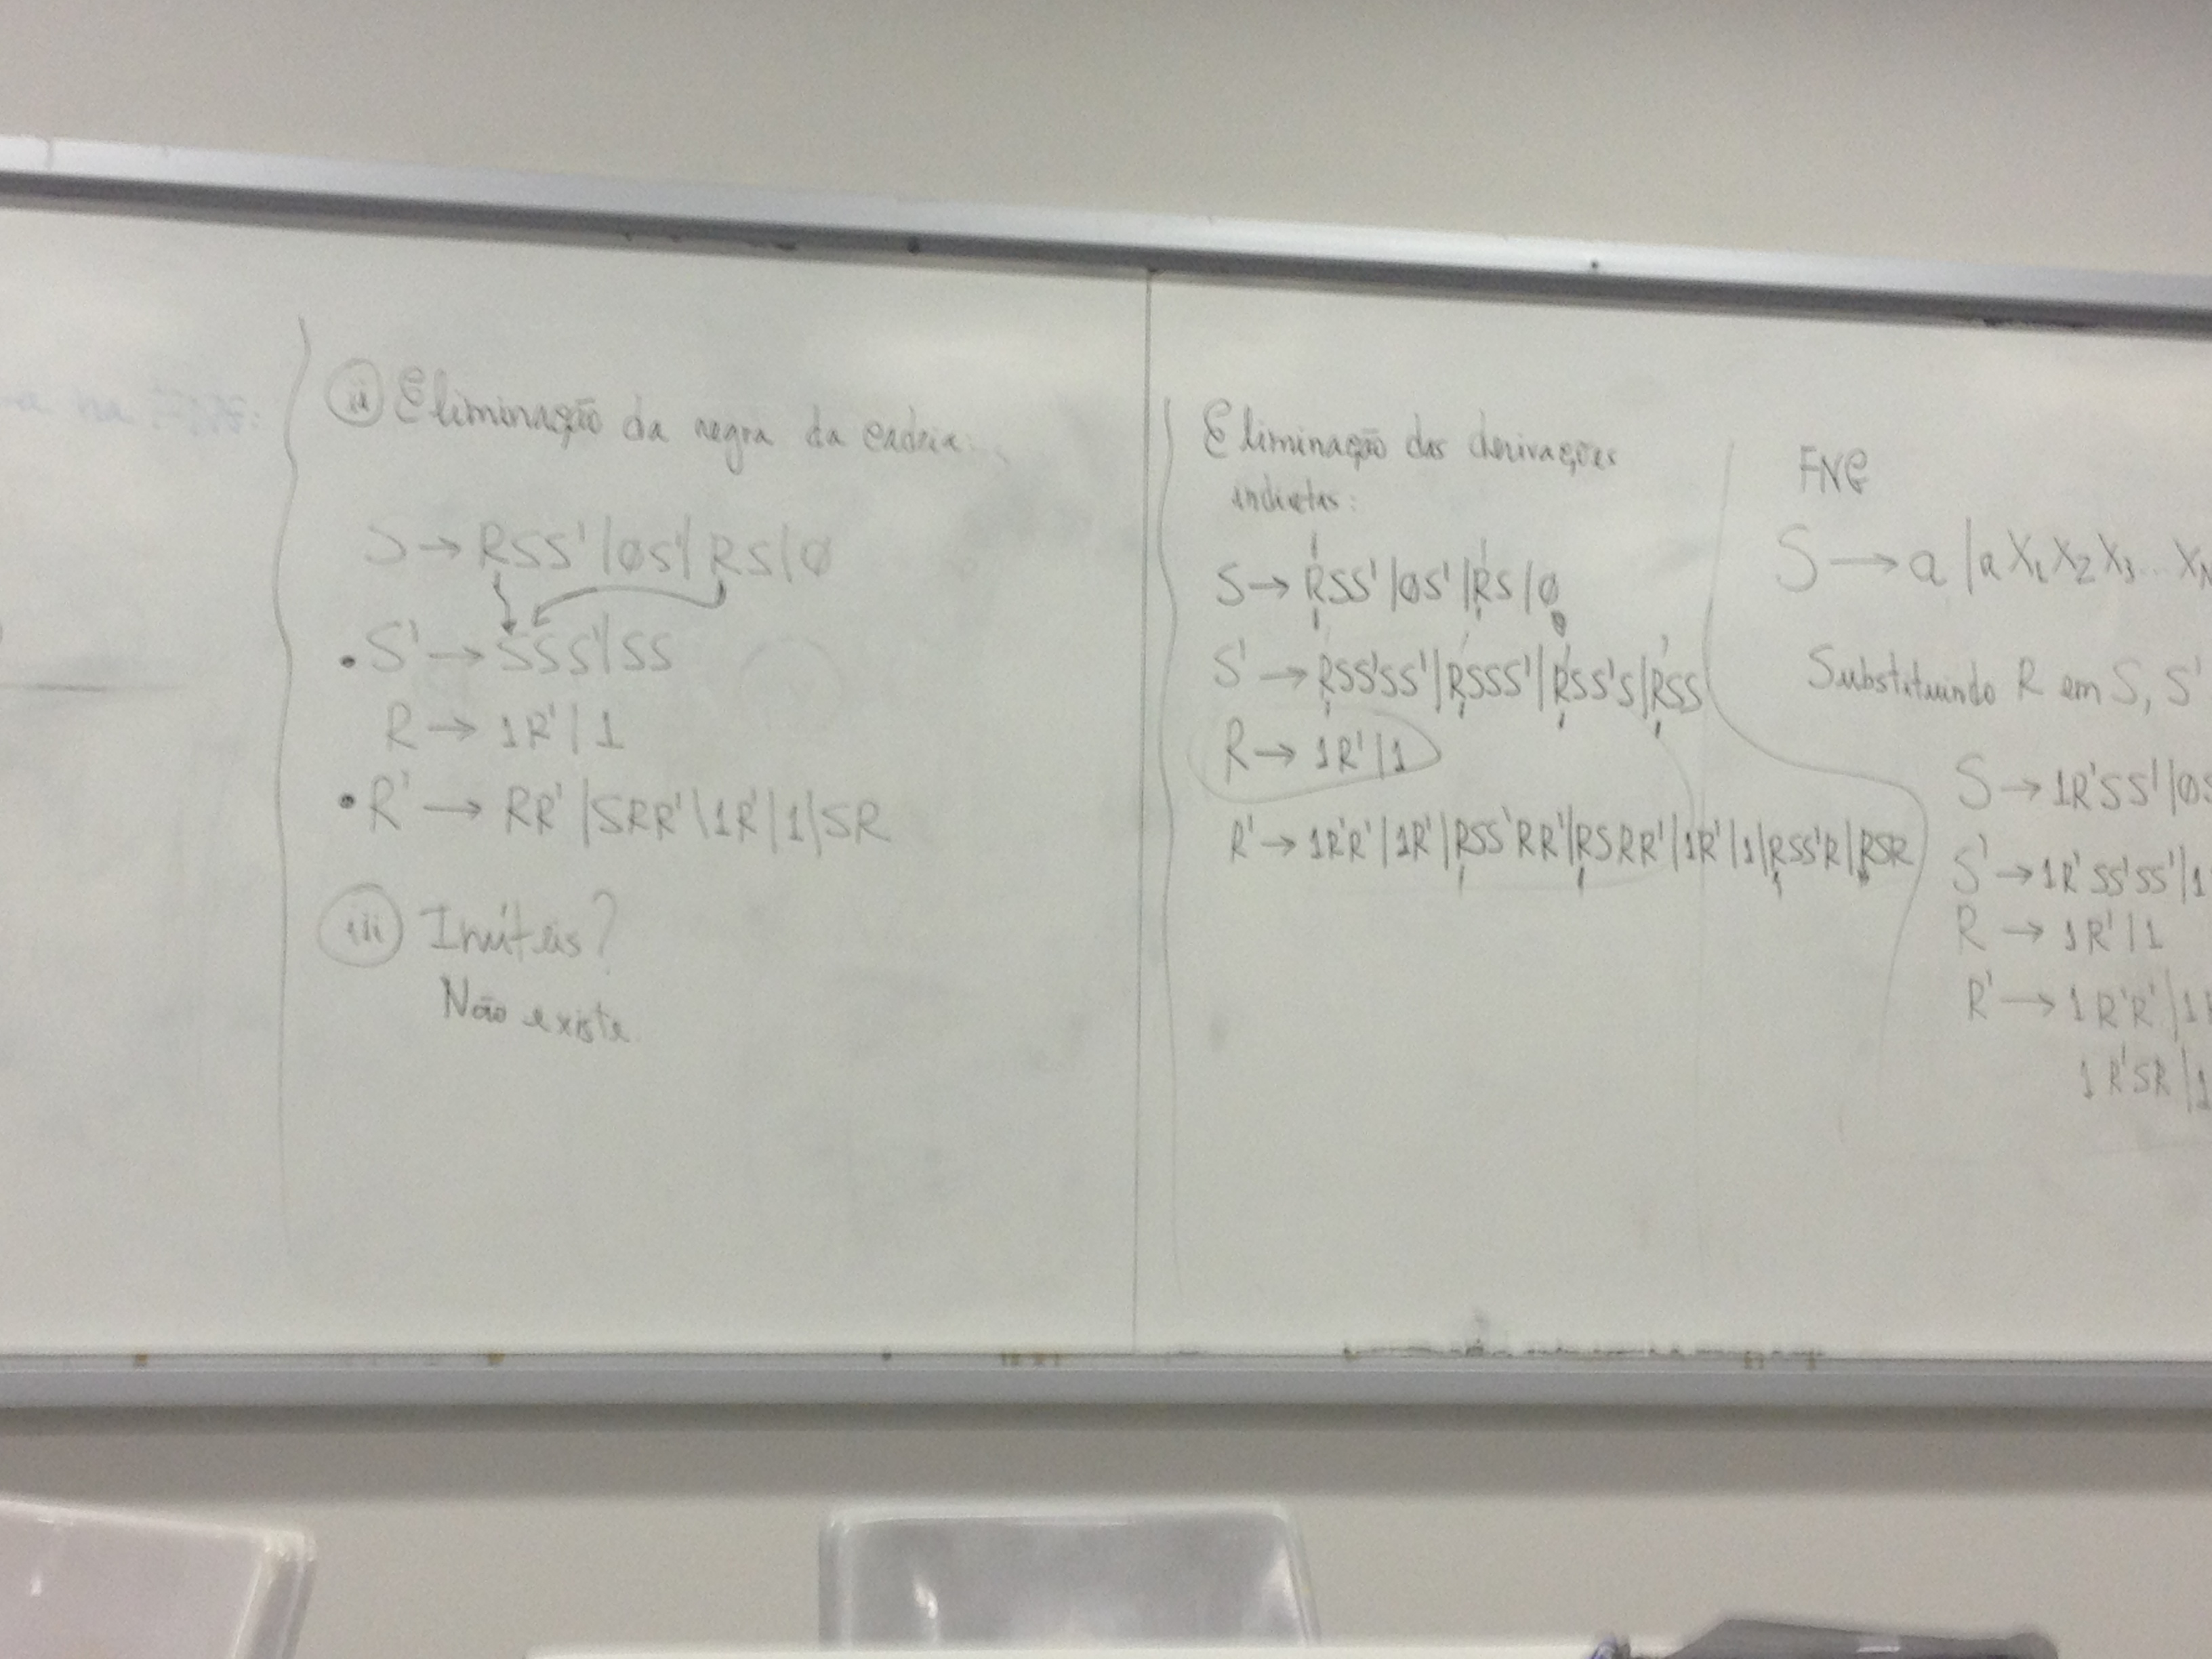 na
ii Eliminação da regra da cadeia:
S → RSS' | 0S' | RS | 0
• S' → SSS' | SS
R → 1R' | 1
• R' → RR' | SRR' \ 1R' | 1 | SR
iii Inúteis?
Não existe
Eliminação das derivações
indiretas:
S → RSS' | 0S' | RS | 0
S' → RSS'SS' | RSSS' | RSS'S | RSS
R → 1R' | 1
R' → 1R'R' | 1R' | RSS'RR' | RSRR' | 1R' | 1 | RSS'R | RSR
FNG
S → a | a X1 X2 X3 ... XN
Substituindo R em S, S'
S → 1R'SS' | 0S
S' → 1R'SS'SS' | 1
R → 1R' | 1
R' → 1R'R' | 1R
1R'SR | 1